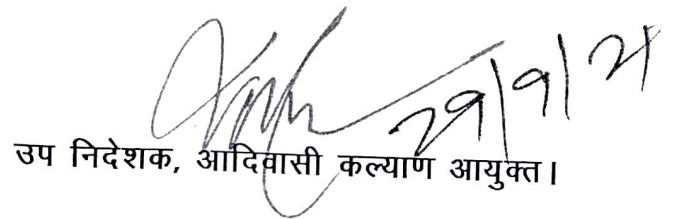 29/9/21
उप निदेशक, आदिवासी कल्याण आयुक्त।